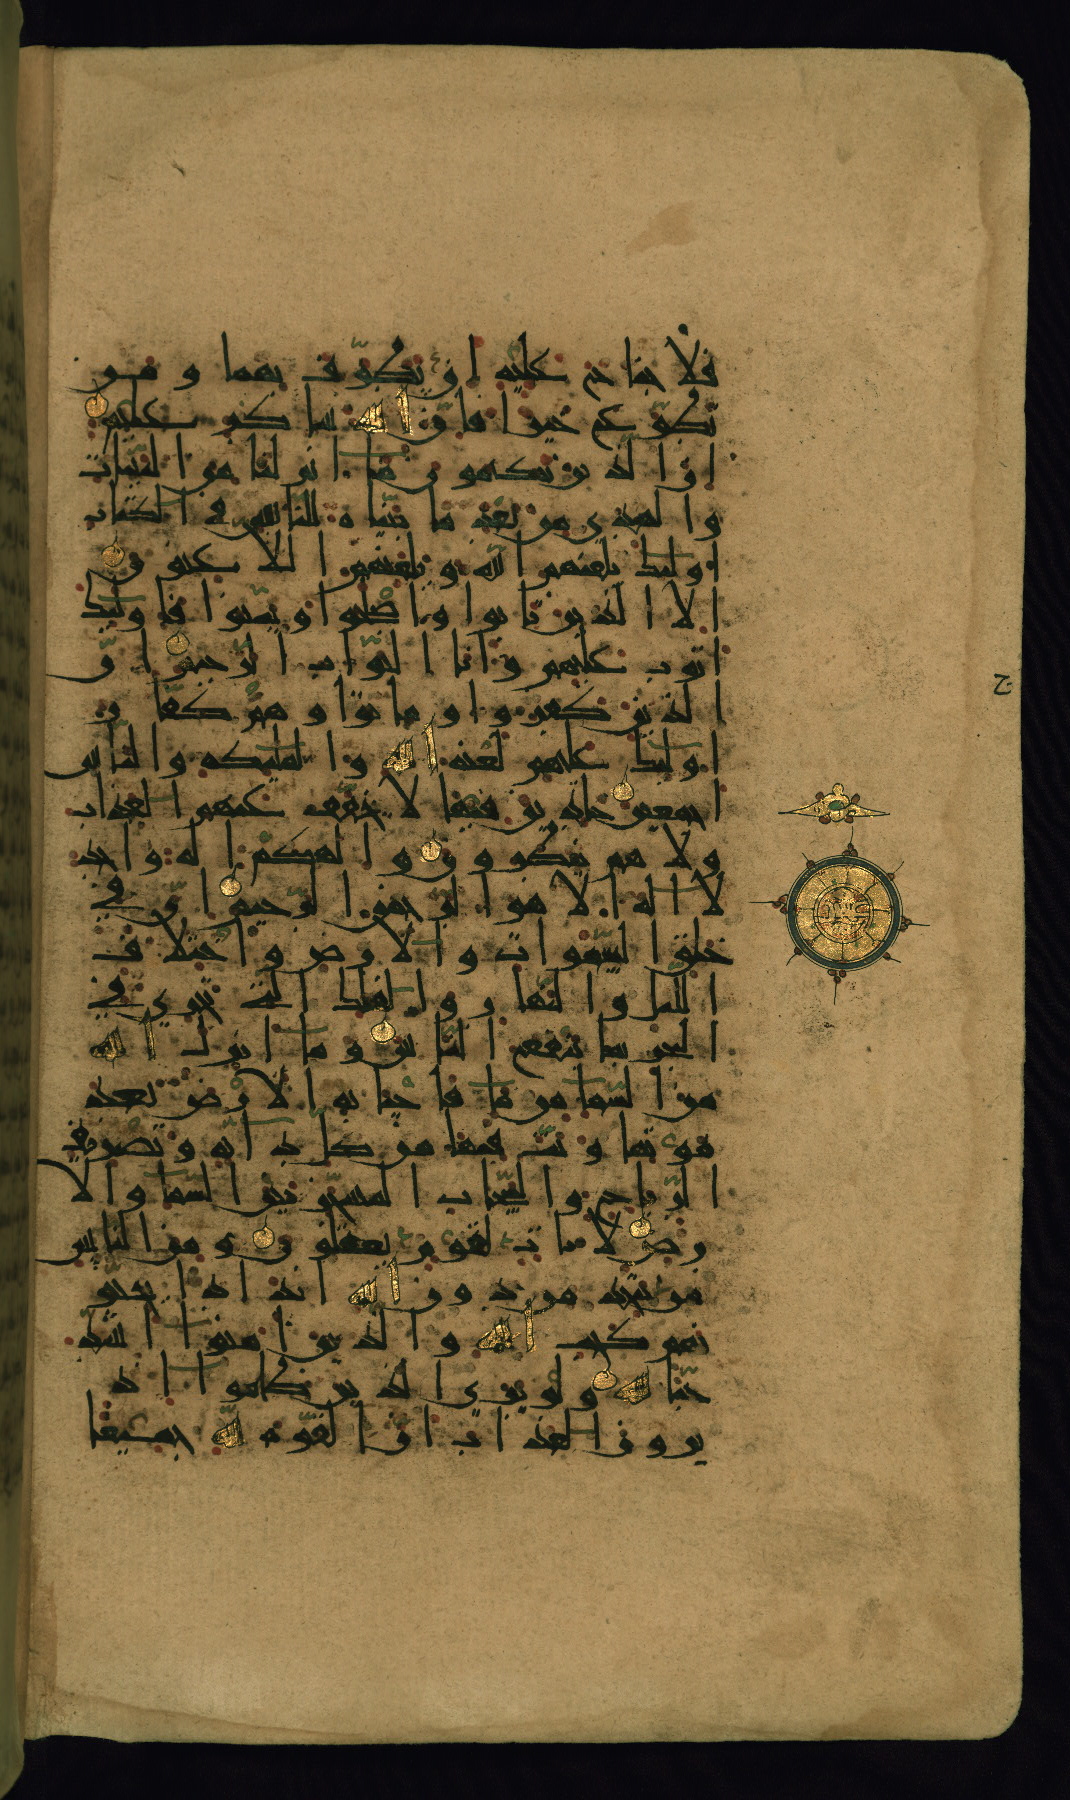 فلا جناح عليه ان يطوف بهما و من
تطوع خيرا فان الله شاكر عليم
ان الذين يكتمون ما انزلنا من البينات
والهدى من بعد ما بيناه للناس في الكتاب
اولئك يلعنهم الله و يلعنهم اللاعنون
الا الذين تابوا و اصلحوا و بينوا فاولئك
اتوب عليهم و انا التواب الرحيم ان
الذين كفروا و ماتوا و هم كفار
اولئك عليهم لعنة الله و الملئكة والناس
اجمعين خالدين فيها لا يخفف عنهم العذاب
ولا هم ينظرون و الهكم اله واحد
لا اله الا هو الرحمن الرحيم ان في
خلق السموات و الارض و اختلاف
اليل و النهار و الفلك التي تجري في
البحر بما ينفع الناس و ما انزل الله
من السما من ما فاحيا به الارض بعد
موتها و بث فيها من كل دابة و تصريف
الرياح و السحاب المسخر بين السما و الا
رض لايات لقوم يعقلون و من الناس
من يتخذ من دون الله اندادا يحبو
نهم كحب الله و الذين امنوا اشد
حبا لله و لو يرى الذين ظلموا اذ
يرون العذاب ان القوة لله جميعا
ح